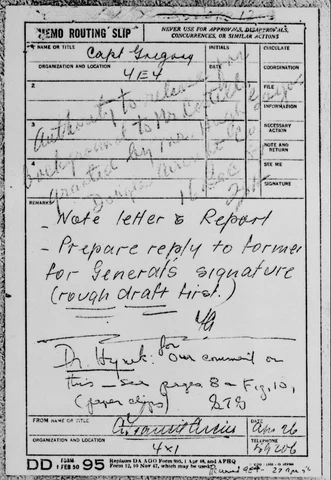 MEMO ROUTING SLIP
NEVER USE FOR APPROVALS, DISAPPROVALS,
CONCURRENCES, OR SIMILAR ACTIONS
1 NAME OR TITLE
Capt Gregory
INITIALS
CIRCULATE
ORGANIZATION AND LOCATION
4E4
DATE
COORDINATION
2
FILE
INFORMATION
Authority to release
background to Mr
3
NECESSARY
ACTION
granted by
NOTE AND
RETURN
4
Douglas Aircraft Co
SEE ME
SIGNATURE
REMARKS
- Note letter & Report
- Prepare reply to former
for General's signature
(rough draft first.)
for
Dr. Hynek: Our comment on
this - see pages 8 - Fig. 10,
(paper clips) GTG
FROM NAME OR TITLE
DATE
Apr 26
ORGANIZATION AND LOCATION
4x1
TELEPHONE
69206
DD FORM 1 FEB 50 95
Replaces DA AGO Form 895, 1 Apr 48, and AFHQ
Form 12, 10 Nov 47, which may be used.